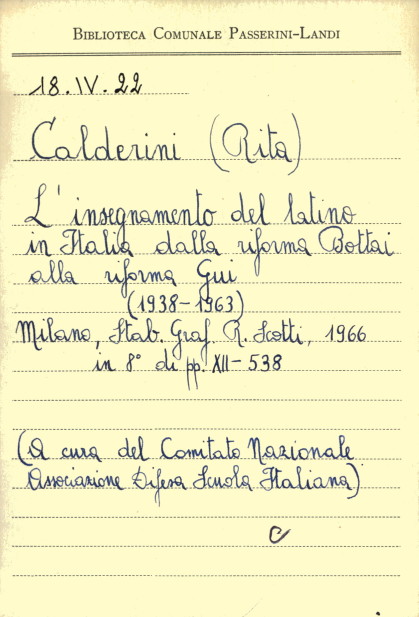 BIBLIOTECA COMUNALE PASSERINI-LANDI
18.IV.22
Calderini (Rita)
L'insegnamento del latino
in Italia dalla riforma Bottai
alla riforma Gui
(1938-1963)
Milano, Stab. Graf. R. Scotti, 1966
in 8° di pp. XII-538
(A cura del Comitato Nazionale
Associazione Difesa Scuola Italiana)
C